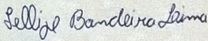 Fellipe Bandeira Lima